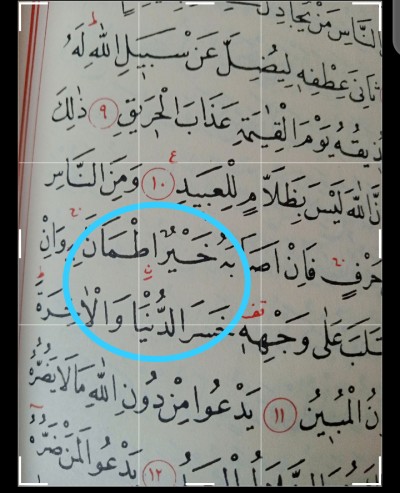 النَّاسِ مَنْ يُجَادِلُ
ثَانِىَ عِطْفِهٖ لِيُضِلَّ عَنْ سَبٖيلِ اللّٰهِ لَهُ
يقُهُ يَوْمَ الْقِيٰمَةِ عَذَابَ الْحَرٖيقِ ٩ ذٰلِكَ
نَّ اللّٰهَ لَيْسَ بِظَلَّامٍ لِلْعَبٖيدِ ١٠ وَمِنَ النَّاسِ
حَرْفٍ فَاِنْ اَصَابَهُ خَيْرٌ اطْمَاَنَّ بِهٖ وَاِنْ
لَبَ عَلٰى وَجْهِهٖ خَسِرَ الدُّنْيَا وَالْاٰخِرَةَ
نُ الْمُبٖينُ ١١ يَدْعُوا مِنْ دُونِ اللّٰهِ مَا لَا يَضُرُّهُ
١٢ يَدْعُوا لَمَنْ ضَرُّهُ